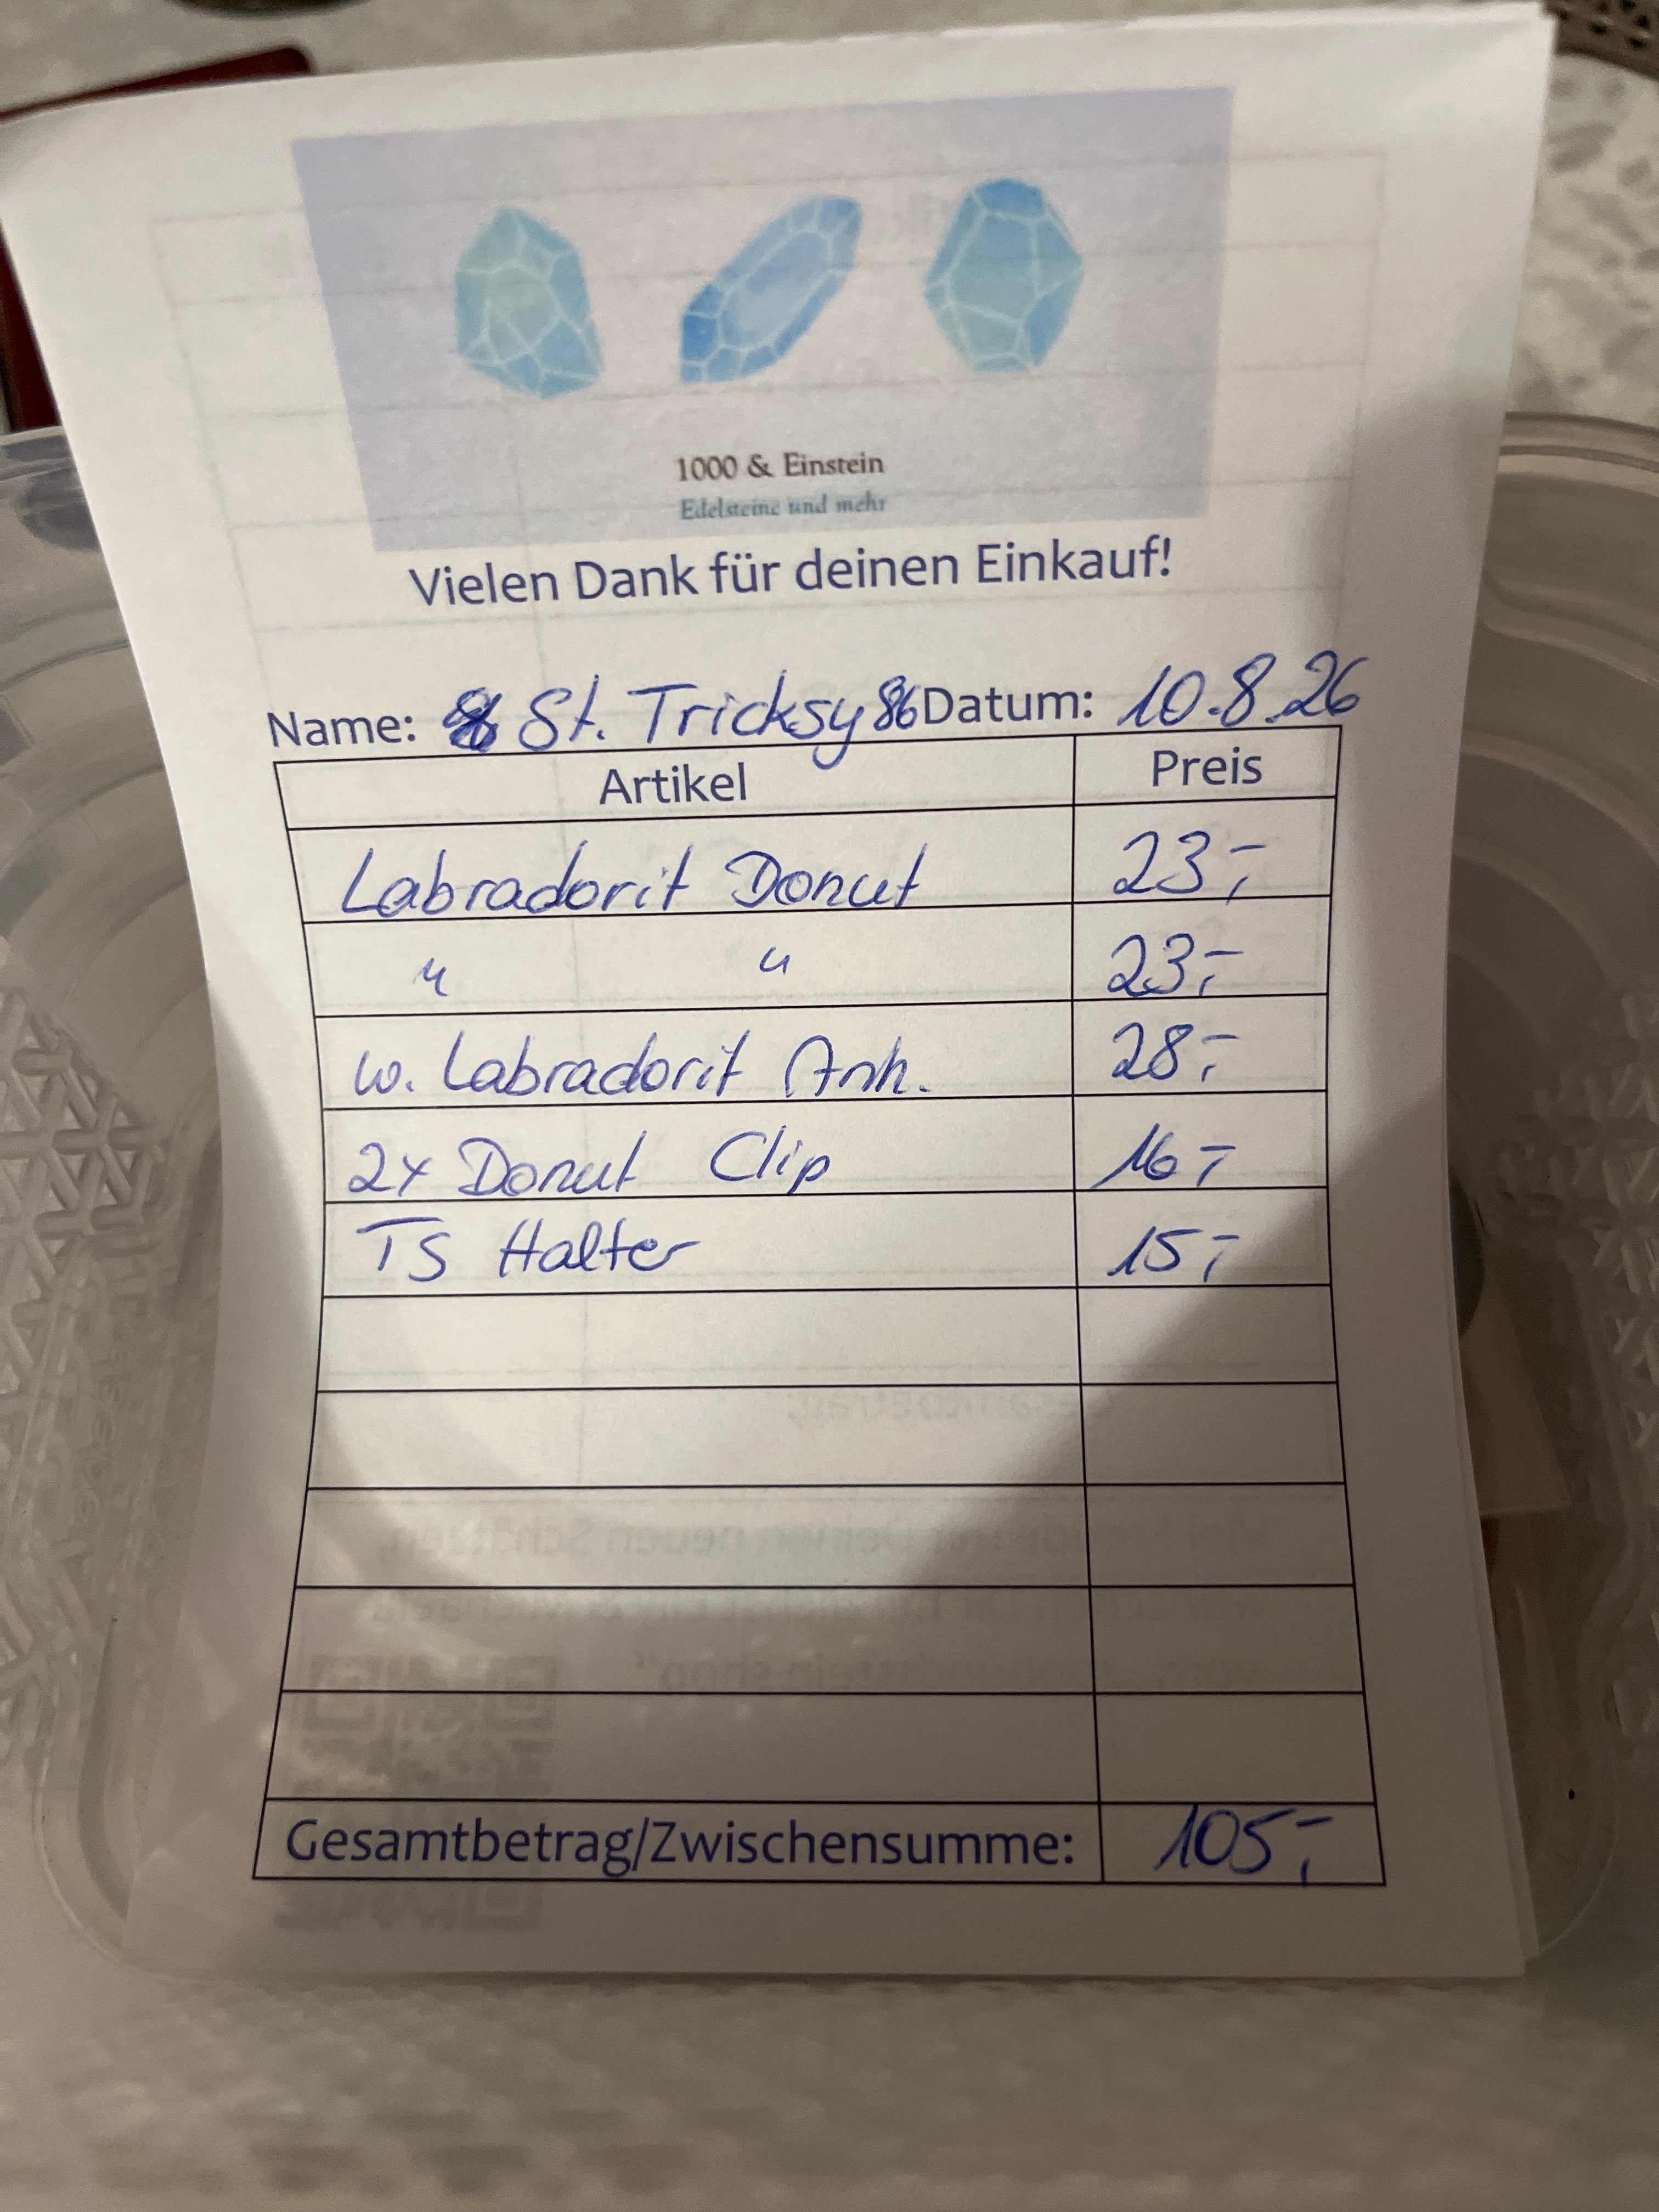 1000 & Einstein
Edelsteine und mehr
Vielen Dank für deinen Einkauf!
Name: St. Tricksy86 Datum: 10.8.26
Artikel Preis
Labradorit Donut 23,-
" " 23,-
w. Labradorit Anh. 28,-
2x Donut Clip 16,-
TS Halter 15,-
Gesamtbetrag/Zwischensumme: 105,-